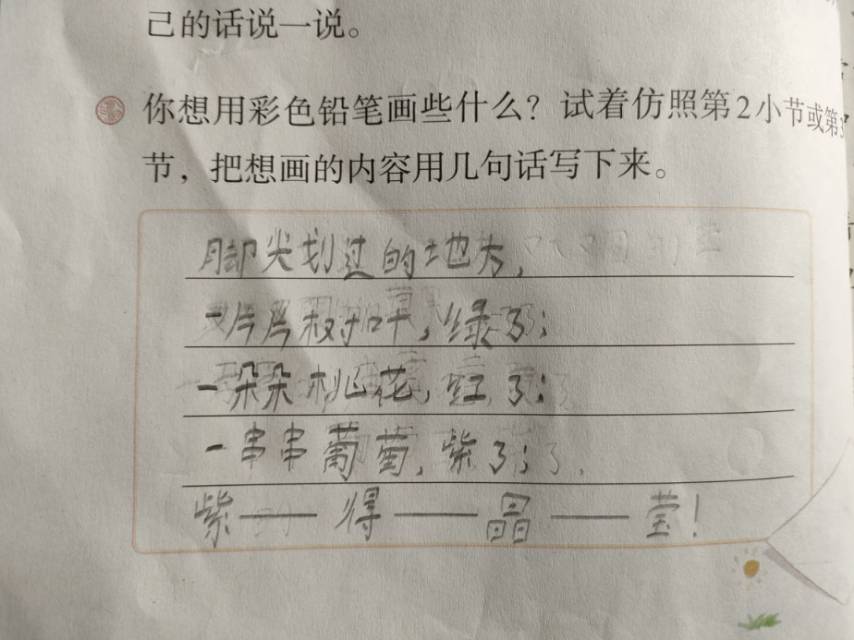 己的话说一说。
你想用彩色铅笔画些什么？试着仿照第2小节或第3
节，把想画的内容用几句话写下来。
脚尖划过的地方，
一片片树叶，绿了；
一朵朵桃花，红了；
一串串葡萄，紫了；
紫——得——晶——莹！